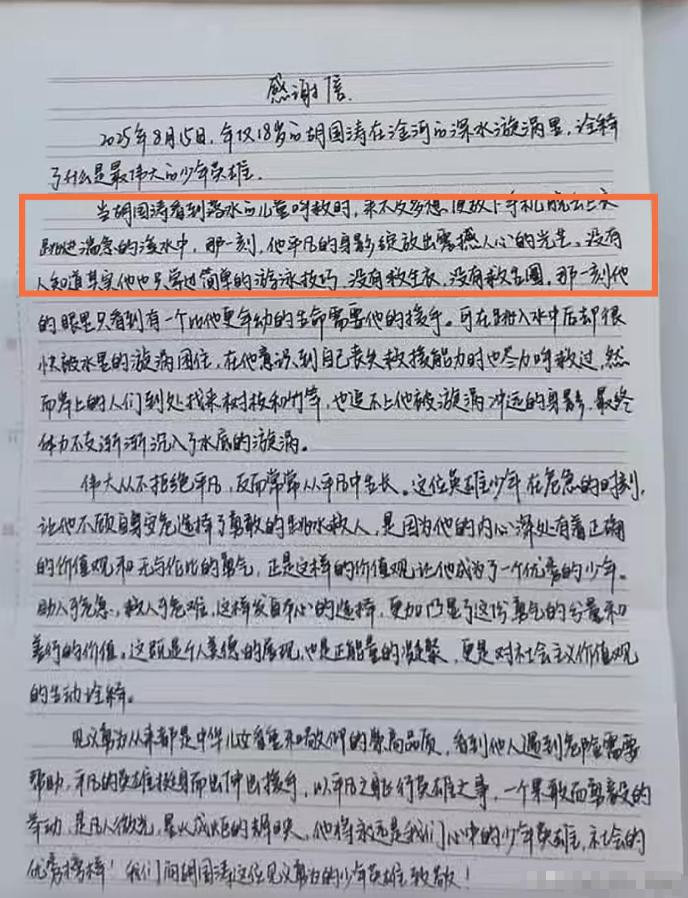 感谢信
2025年8月15日,年仅18岁的胡国涛在淦河的深水漩涡里,诠释
了什么是最伟大的少年英雄.
当胡国涛看到落水的儿童呼救时,来不及多想便放下手机脱去上衣
跳进湍急的淦水中,那一刻,他平凡的身影绽放出震撼人心的光芒,没有
人知道其实他也只学过简单的游泳技巧,没有救生衣,没有救生圈,那一刻他
的眼里只看到有一个比他更年幼的生命需要他的援手。可在跳入水中后却很
快被水里的漩涡困住,在他意识到自己丧失救援能力时也尽力呼救过,然
而岸上的人们到处找来树枝和竹竿,也追不上他被漩涡冲远的身影,最终
体力不支渐渐沉入了水底的漩涡。
伟大从不拒绝平凡,反而常常从平凡中生长。这位英雄少年在危急的时刻,
让他不顾自身安危选择了勇敢的跳水救人,是因为他的内心深处有着正确
的价值观和无与伦比的勇气,正是这样的价值观让他成为了一个优秀的少年。
助人于危急,救人于危难,这样发自本心的选择,更加凸显了这份勇气的分量和
善行的价值。这既是个人美德的展现,也是正能量的凝聚,更是对社会主义价值观
的生动诠释。
见义勇为从来都是中华儿女看重和敬仰的崇高品质,看到他人遇到危险需要
帮助,平凡的英雄挺身而出伸出援手,以平凡之躯行英雄之事,一个果敢而勇毅的
举动,是凡人微光,星火成炬的辉映,他将永远是我们心中的少年英雄,社会的
优秀榜样!我们向胡国涛这位见义勇为的少年英雄致敬!